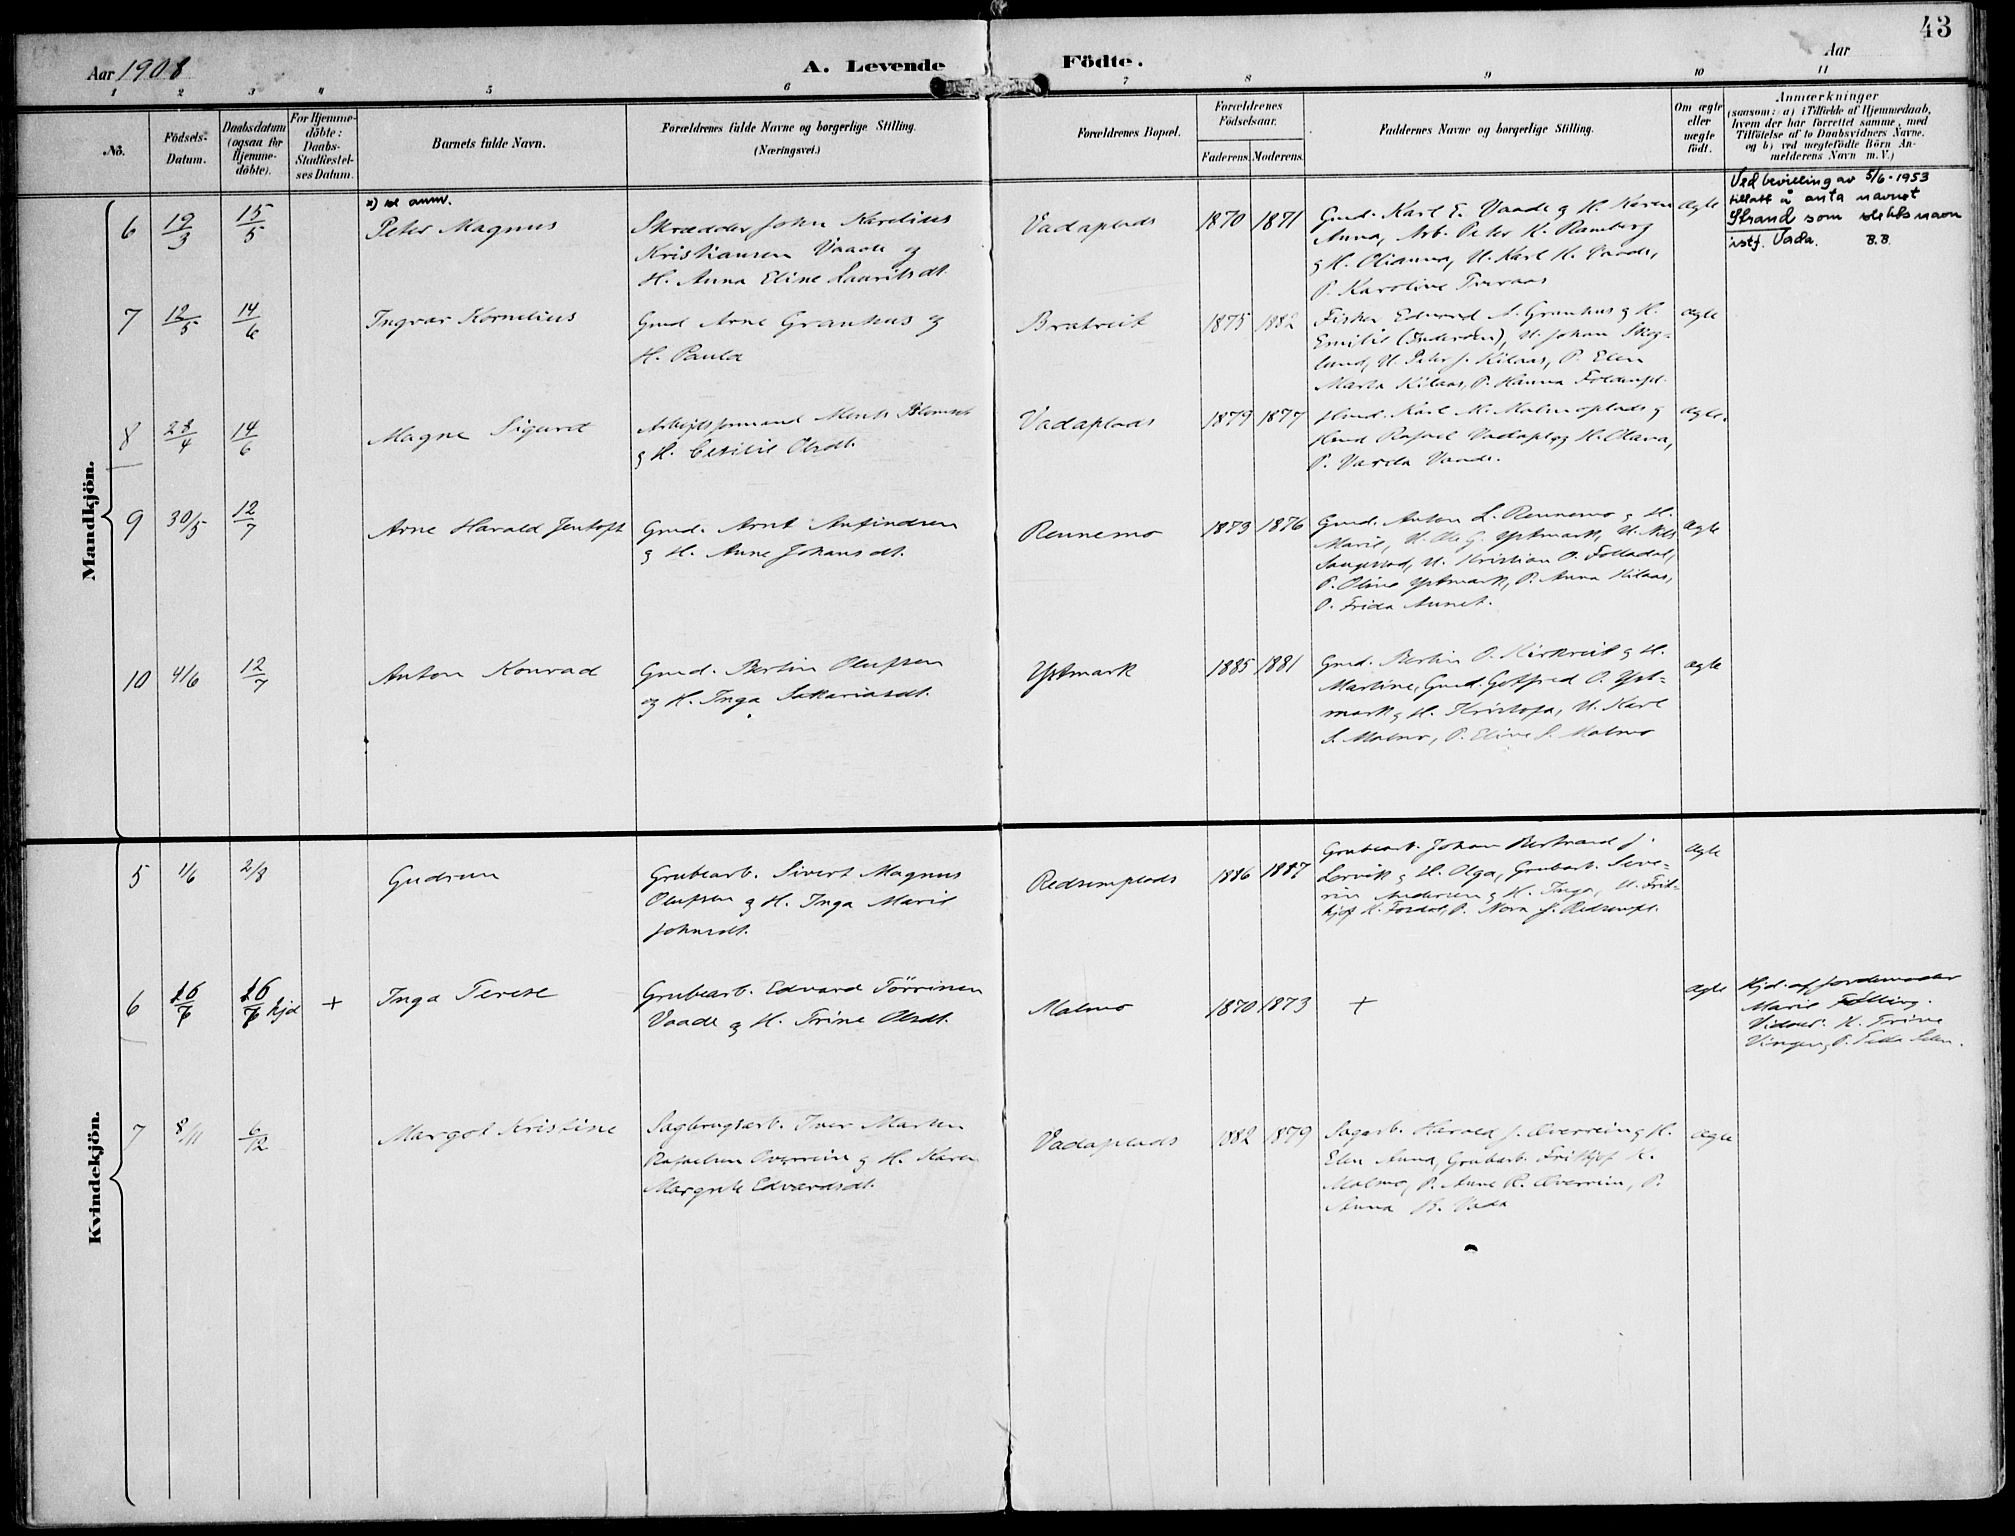 43
Aar 1908
A. Levende Födte.
Aar
1 2 3 4 5 6 7 8 9 10 11
No.
Födsels-Datum.
Daabsdatum (ogsaa for Hjemme-döbte).
For Hjemme-döbte: Daabs-Stadfæstel-ses Datum.
Barnets fulde Navn.
Forældrenes fulde Navne og borgerlige Stilling.
(Næringsvei.)
Forældrenes Bopæl.
Forældrenes Födselsaar.
Faderens. Moderens.
Faddernes Navne og borgerlige Stilling.
Om ægte eller uægte födt.
Anmærkninger
(saasom: a) i Tilfælde af Hjemmedaab,
hvem der har forrettet samme, med
Tilföielse af to Daabsvidners Navne.
og b) ved uægtefödte Börn An-
melderens Navn m. V.)
Mandkjön.
x) se anm.
6 19/3 15/5 Peter Magnus
Skrædder John Karelius
Kristiansen Vaade og
H. Anna Eline Lauritsdt.
Vadaplads 1870 1871
Gmd. Karl E. Vaade og H. Karen
Anna, Arb. Peter K. Ramberg
og H. Olianna, U. Karl K. Vaade,
P. Karoline
ægte
Ved bevilling av 5/6-1953
tillatt å anta navnet
Strand som slektsnavn
istf. Vada. B.B.
7 12/5 14/6 Ingvar Kornelius
Gmd Arne Granhus og
H. Paula
Bratreit 1875 1882
Fisker Edvard A. Granhus og H.
Emilie (Indersøen), U. Johan Skog-
lund, U. Peter J. Kilaas, P. Elen
Marta Kilaas, P. Hanna
ægte
8 28/4 14/6 Magne Sigurd
Arbejdsformand Ments
og H. Cecilie Olsdt.
Vadaplads 1879 1877
Hmd. Karl M. Malmoplads og
Hmd Rafael Vadapl. og H. Olava,
P. Varda Vaade.
ægte.
9 30/5 12/7 Arne Harald Jentoft
Gmd. Arnt Anfindsen
og H. Anne Johansdt.
Rennemo 1873 1876
Gmd. Anton L. Rennemo og H.
Marie, U. Ole G. Ystmark, U. Nils
U. Kristian O. Folladal,
P. Oline Ystmark, P. Anna Kilaas,
P. Frida Aunet.
ægte
10 4/6 12/7 Anton Konrad
Gmd. Bertin Olufsen
og H. Inga Sakariasdt.
Ystmark 1885 1881
Gmd. Bertin O. Kirkreit og H.
Martine, Gmd. Gotfred O. Yst-
mark og H. Kristofa, U. Karl
S. Malmo, P. Eline S. Malmo
ægte
Kvindekjön.
5 1/6 2/8 Gudrun
Grubearb. Sivert Magnus
Olufsen og H. Inga Marie
Johnsdt.
Redsemplads 1886 1887
Grubearb. Johan Bertrand J.
Lorvik og H. Olga, Grubearb. Seve-
rin Andersen og H. Inga, U. Frit-
hjof K. Fosdal, P. Nora J. Redsempl.
ægte
6 26/6 26/6 hjd + Inga Terese
Grubearb. Edvard Törrisen
Vaade og H. Trine Olsdt.
Malmo 1870 1873 +
ægte
Hjd. af jordemoder
Marie Fölling.
Vidner: H. Trine
7 8/11 6/12 Margot Kristine
Sagbrugsarb. Iver Marten
Rafaelsen Overrein og H. Karen
Margrete Edvardsdt.
Vadaplads 1882 1879
Sagarb. Harald J. Overrein og H.
Elen Anna, Grubearb. Frithjof K.
Malmo, P. Anne R. Overrein, P.
Anna K. Vada
ægte